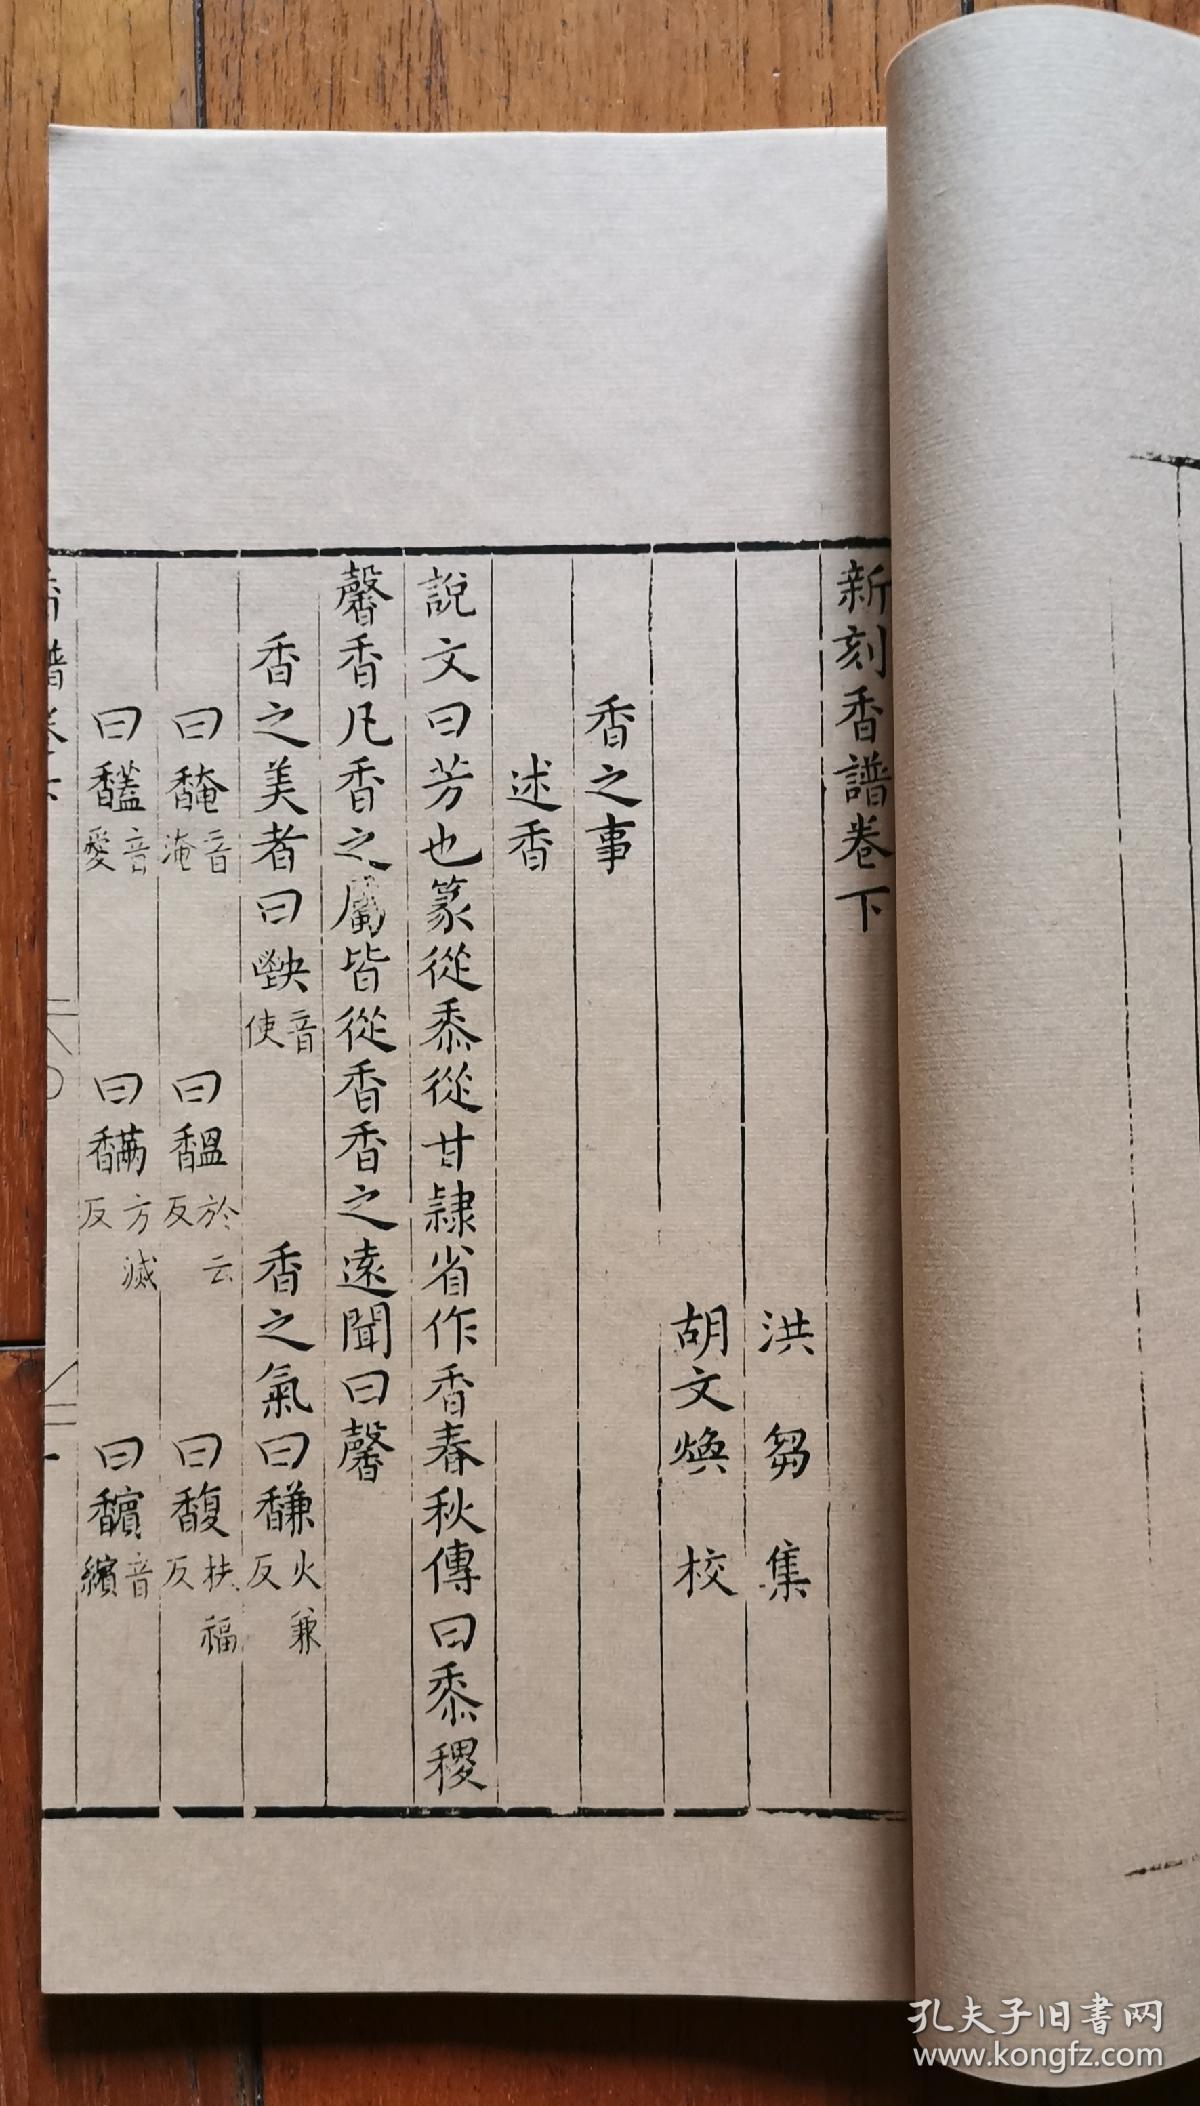 新刻香譜卷下
洪芻集
胡文煥校
香之事
述香
說文曰芳也篆從黍從甘隷省作香春秋傳曰黍稷
馨香凡香之屬皆從香香之遠聞曰馨
香之美者曰䭲音使 香之氣曰馦火兼反
曰馣音淹 曰馧於云反 曰馥扶福反
曰馤音愛 曰䭱方滅反 曰馪音繽
香譜卷下
孔夫子旧书网
www.kongfz.com